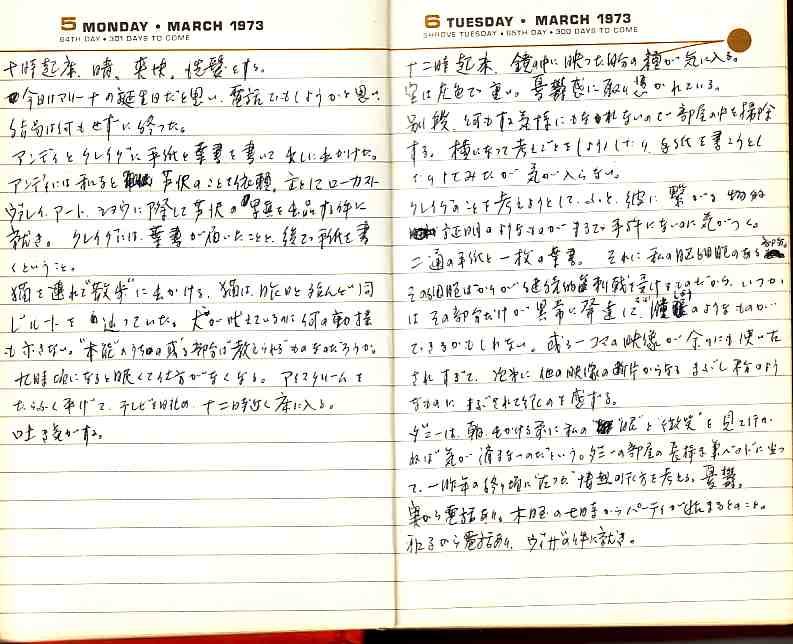 5 MONDAY • MARCH 1973
64TH DAY • 301 DAYS TO COME
十時起床、晴、爽快、洗髪をする。
今日はマリーナの誕生日だと思い、電話でもしようかと思い、
結局は何もせずに終った。
アンディとクレイグに手紙と葉書を書いて出しに出かけた。
アンディには和子と芦沢のことを依頼、主としてローカスト
ヴァレイ・アート・ショウに際して芦沢の写真を出品する件に
就き。クレイグには、葉書が届いたことと、後で手紙を書
くということ。
猫を連れて"散歩"に出かける。猫は昨日と殆んど同
じルートを辿っていた。犬が吠えているのに何の動揺
も示さない。"本能"のうちの或る部分は教えられるものなのだろうか。
九時頃になると眠くて仕方がなくなる。アイスクリームを
たらふく平げて、テレビを見、十二時近く床に入る。
吐き気がする。
6 TUESDAY • MARCH 1973
SHROVE TUESDAY • 65TH DAY • 300 DAYS TO COME
十二時起床、鏡の中に映った自分の が気に入る。
空は灰色で重い。憂鬱感に取り憑かれている。
別段、何もする気持にもなれないので部屋の中を掃除
する。横になって考えごとをしようとしたり、手紙を書こうとし
たりしてみたが気が入らない。
クレイグのことを考えようとして、ふと、彼に繋がる物的
証明のようなものがまるで手許にないのに気がつく。
二通の手紙と一枚の葉書。それに私の脳細胞のある部分。
その細胞ばかりが継続的な刺戟を受けるのだから、いつか
はその部分だけが異常に発達して、 のようなものが
できるかもしれない。或る一コマの映像が余りにも使い古
されすぎて、次第に他の映像の断片からなるまぶし のよう
なものに まぶされて行くのを感ずる。
ダニーは、朝、出かける前に私の"眼"と"微笑"を見て行か
ねば気が済まないのだという。ダニーの部屋の長椅子兼ベッドに坐っ
て、一昨年の終り頃に"たった" を考える。憂鬱。
奥から電話あり。木曜の七時からパーティが始まるとのこと。
和子から電話あり、ヴィザの件に就き。